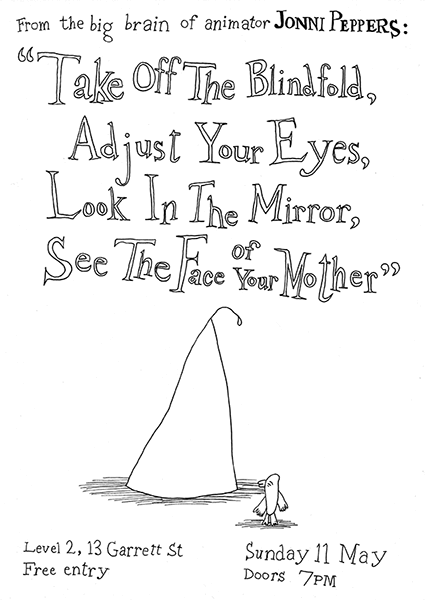 From the big brain of animator JONNI PEPPERS:
"Take Off The Blindfold,
Adjust Your Eyes,
Look In The Mirror,
See The Face of Your Mother"
Level 2, 13 Garrett St
Free entry
Sunday 11 May
Doors 7PM